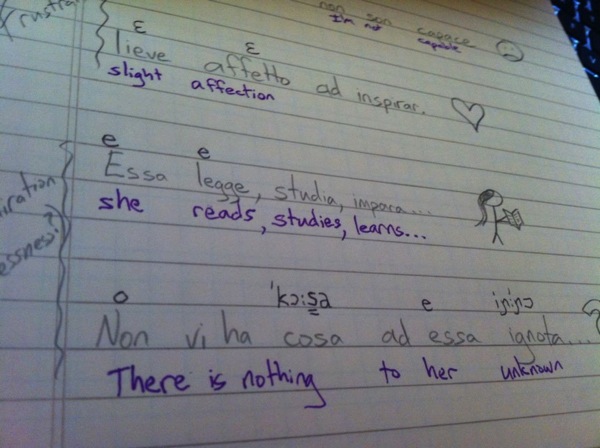 non son capace
I'm not capable
ɛ ɛ
lieve affetto ad inspirar.
slight affection
e e
Essa legge, studia, impara...
she reads, studies, learns...
o 'kɔ:sa e
Non vi ha cosa ad essa ignota...
There is nothing to her unknown